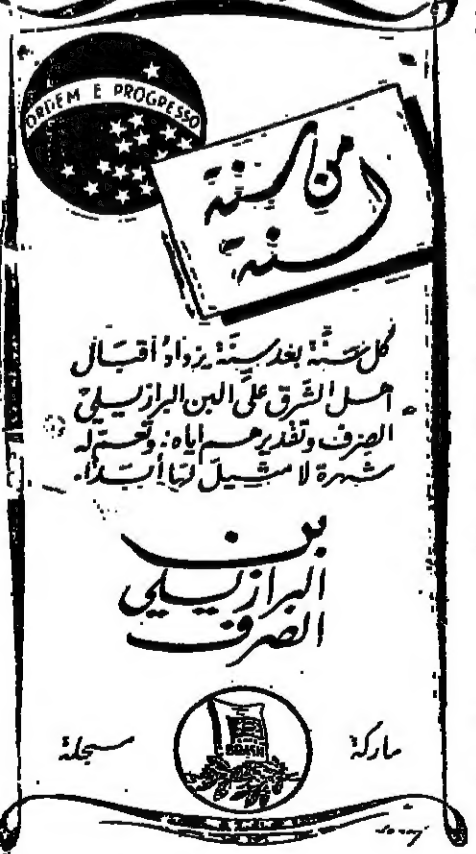 ORDEM E PROGRESSO
من سنة
لسنة
كل سنة بعد سنة يزداد اقبال
اهل الشرق على البن البرازيلي
الصرف وتقديرهم اياه. وتحرز له
شهرة لا مثيل لها أبدا.
بن
البرازيلي
الصرف
ماركة
مسجلة
BRASIL